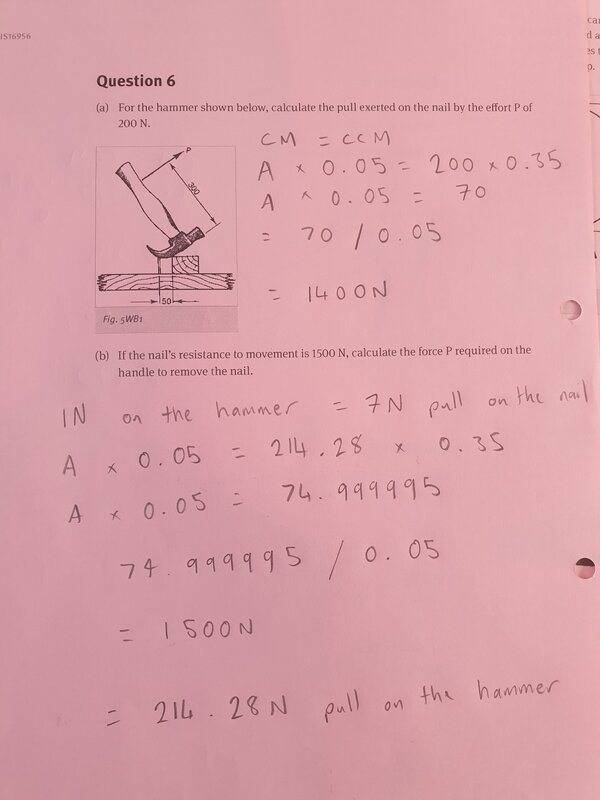 IST6956
Question 6
(a) For the hammer shown below, calculate the pull exerted on the nail by the effort P of
200 N.
CM = CCM
A × 0.05 = 200 × 0.35
A × 0.05 = 70
= 70 / 0.05
= 1400N
P
300
50
Fig. 5WB1
(b) If the nail's resistance to movement is 1500 N, calculate the force P required on the
handle to remove the nail.
1N on the hammer = 7N pull on the nail
A × 0.05 = 214.28 × 0.35
A × 0.05 = 74.999995
74.999995 / 0.05
= 1500N
= 214.28N pull on the hammer